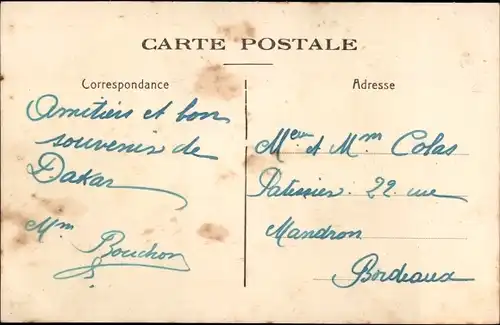 CARTE POSTALE
Correspondance
Adresse
Amitiés et bon
souvenir de
Dakar
Mm Bouchon
Meur et Mm Colas
Patissier 22 rue
Mandron
Bordeaux